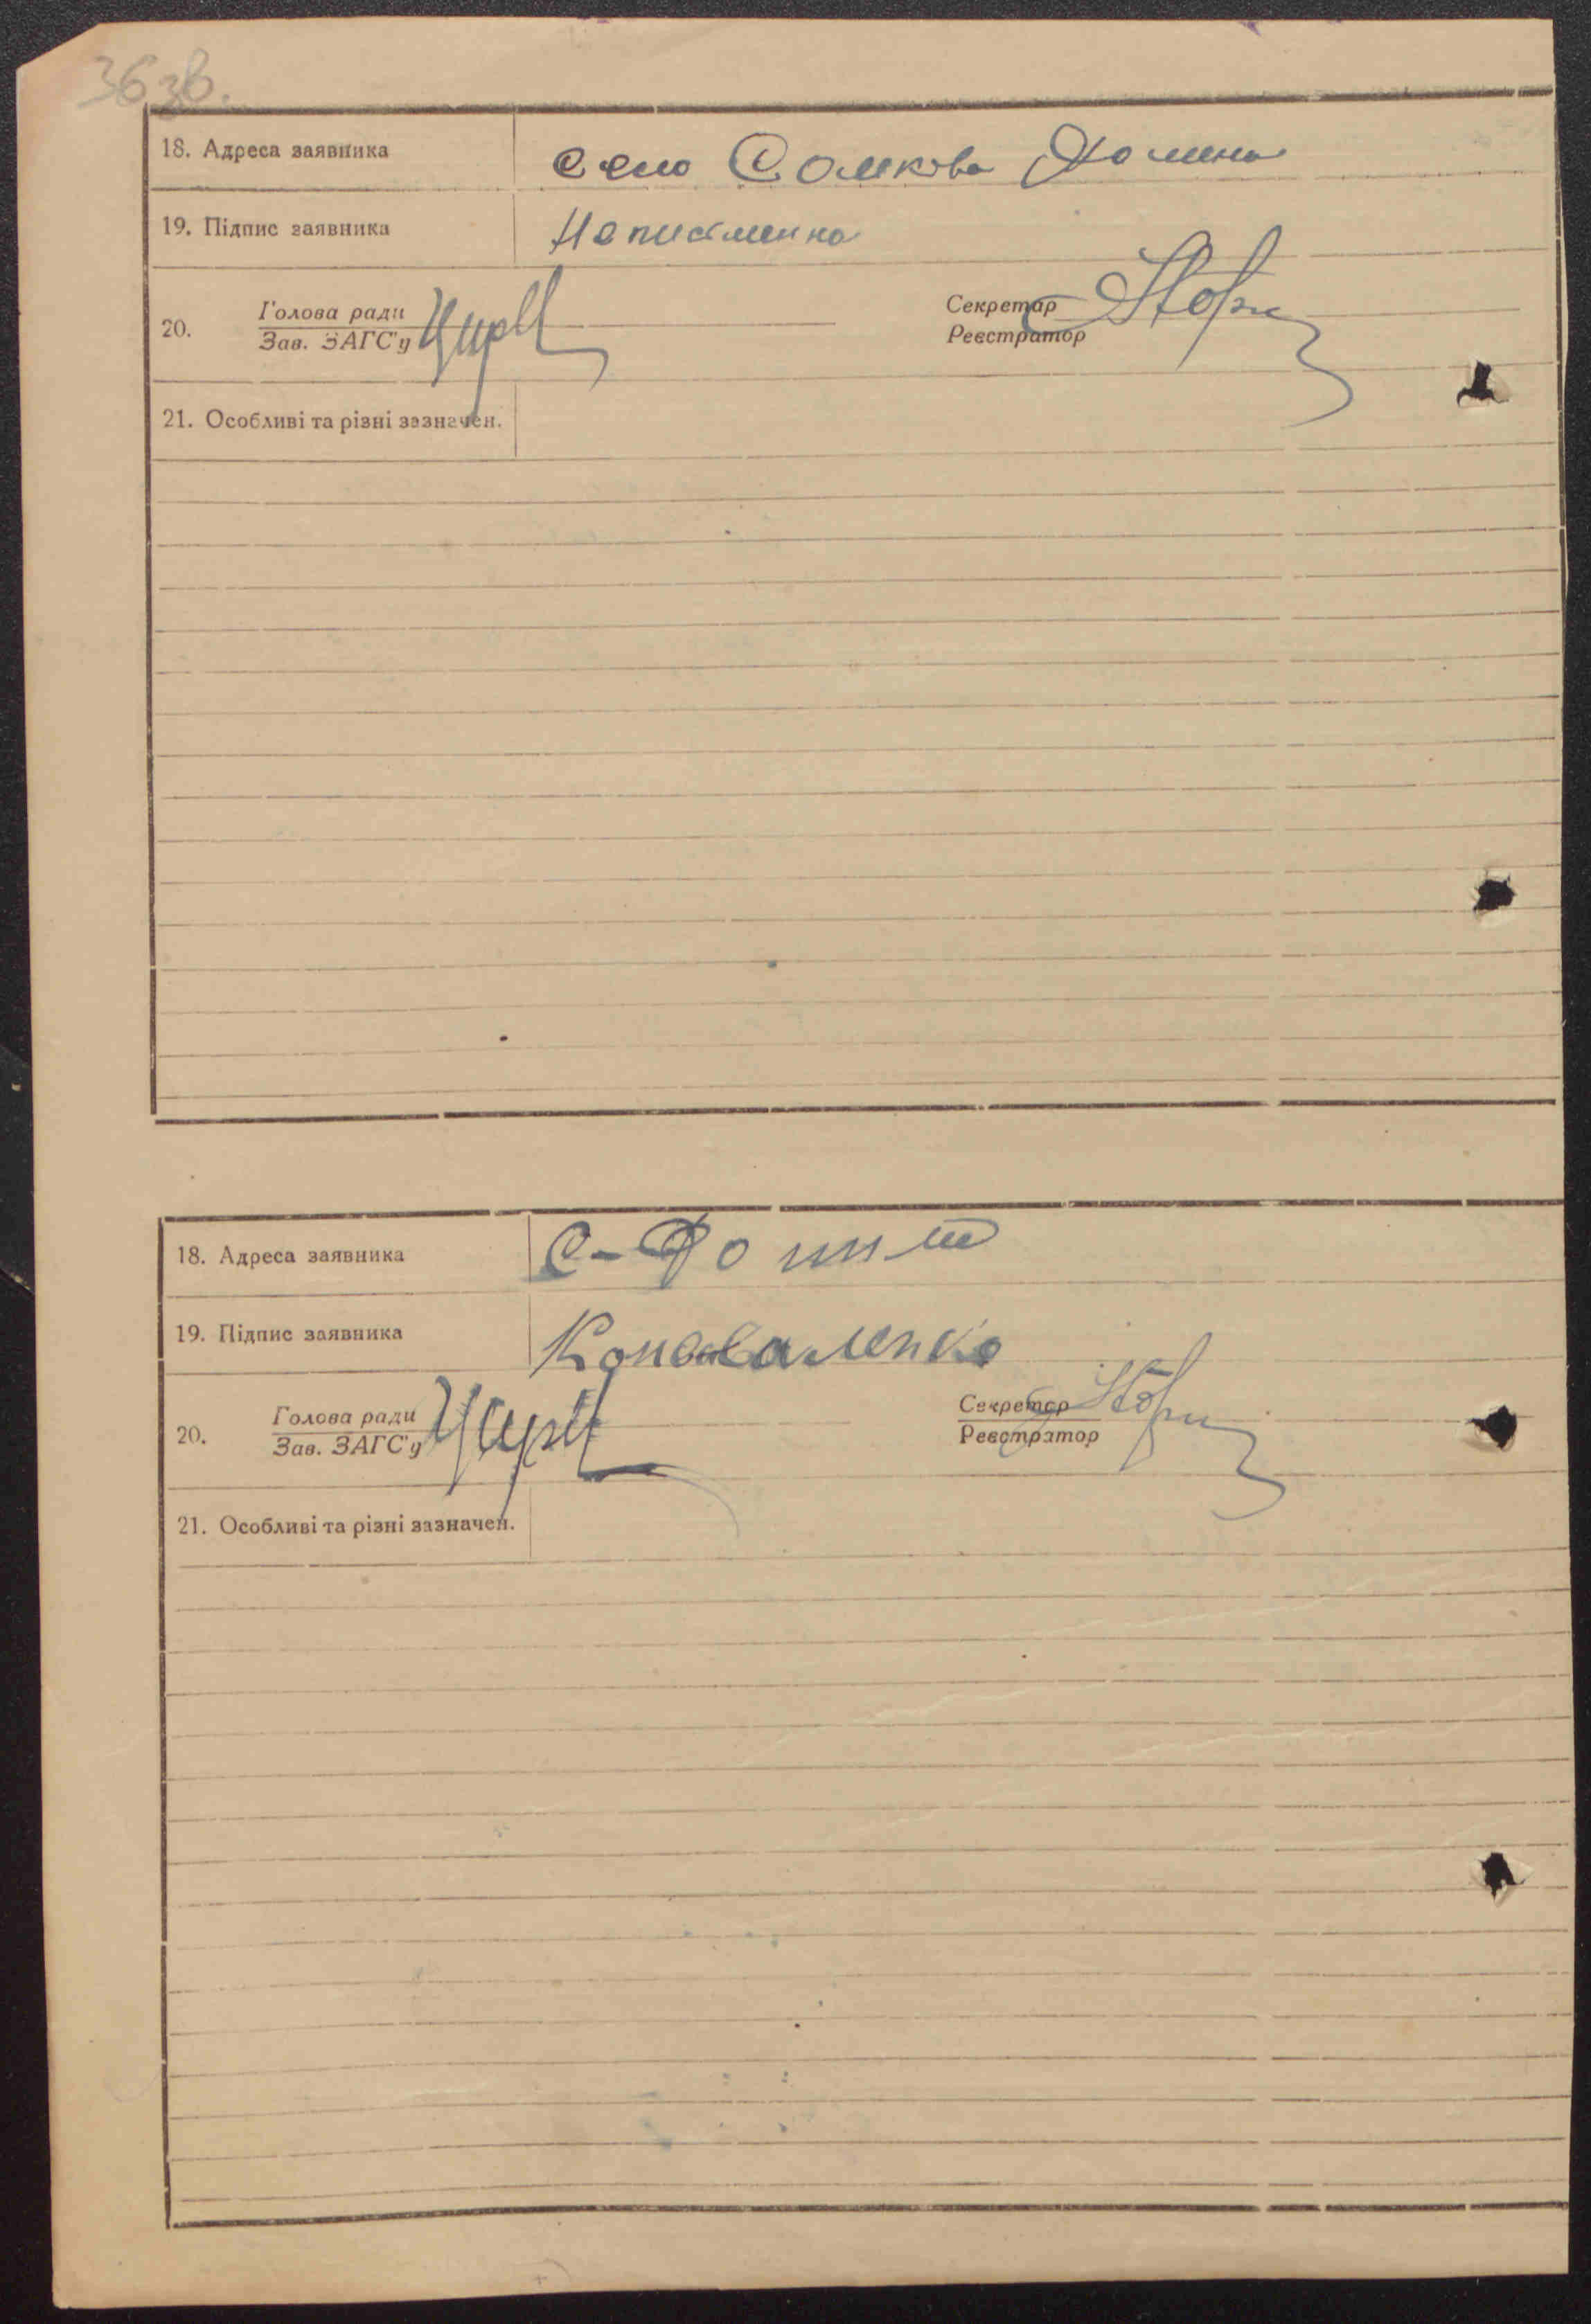 36зв.
18. Адреса заявника село Сомкова Долина
19. Підпис заявника Неписьменна
20. Голова ради
Зав. ЗАГС'у
Секретар
Реєстратор
21. Особливі та різні зазначен.
18. Адреса заявника
19. Підпис заявника Коноваленко
20. Голова ради
Зав. ЗАГС'у
Секретар
Реєстратор
21. Особливі та різні зазначен.